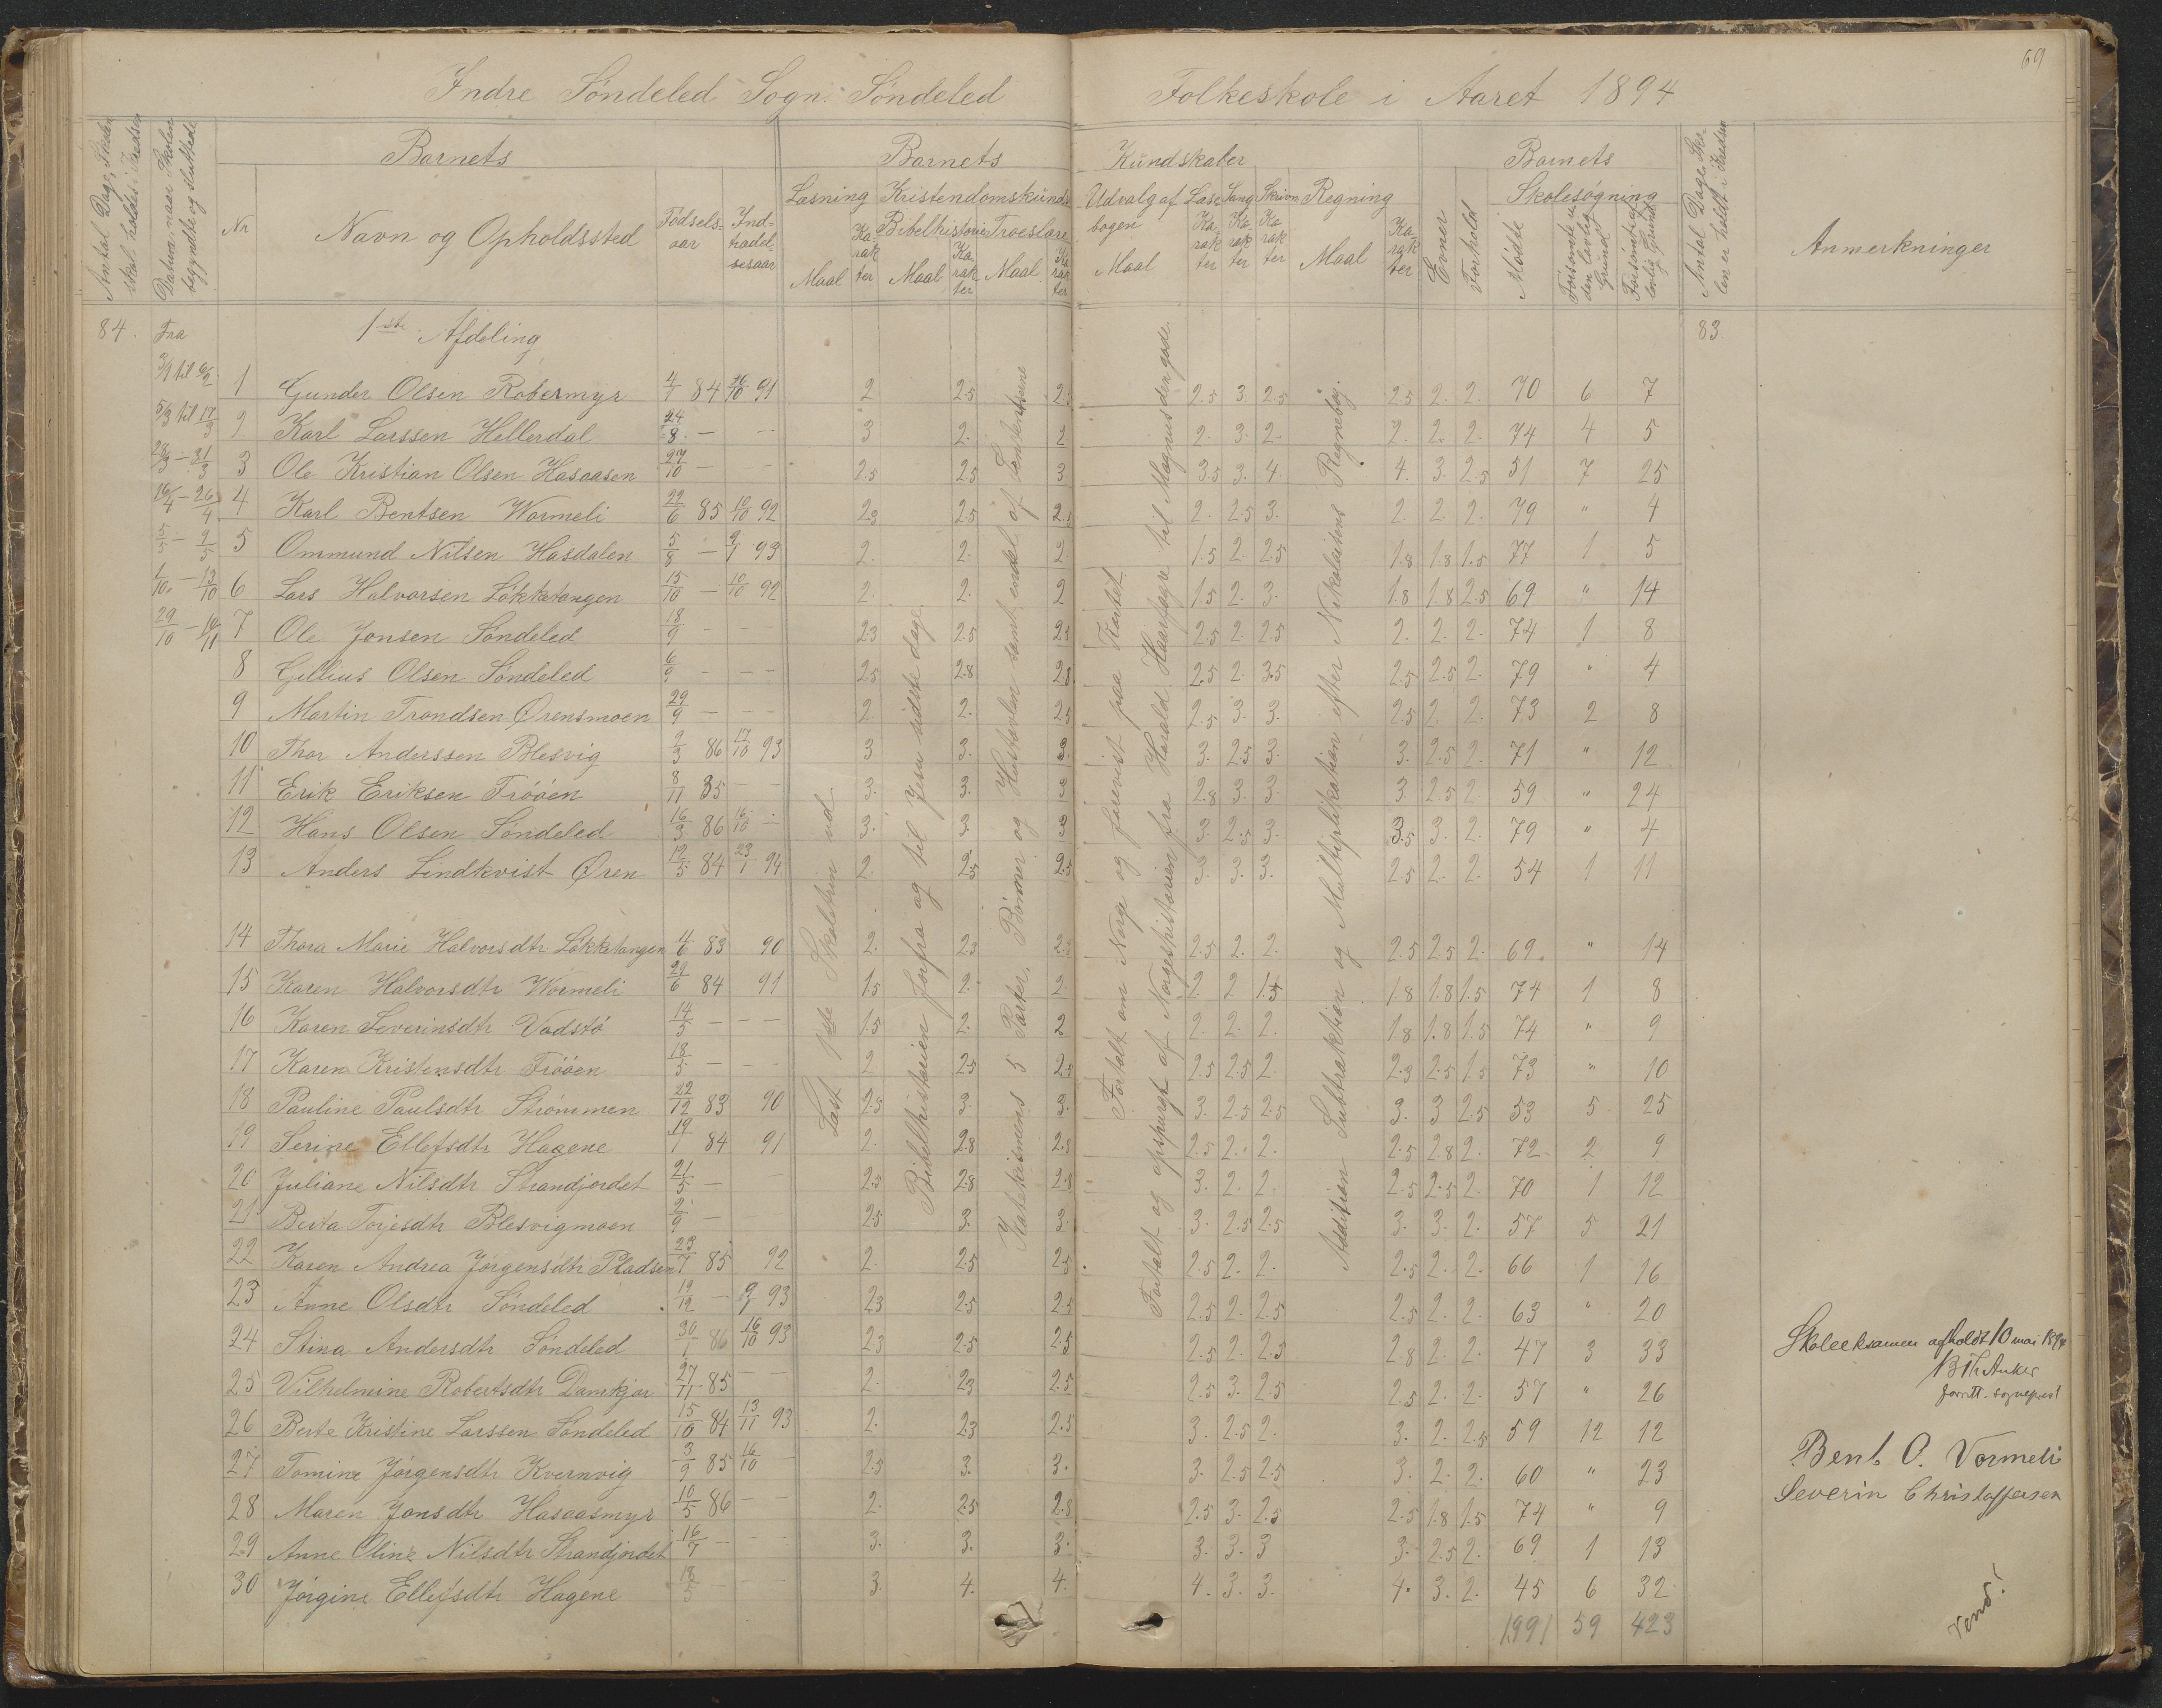 69
Indre Söndeled Sogn. Söndeled Folkeskole i Aaret 1894
Antal Dage, Skolen skal holdes i Kredsen
Datum, naar Skolen begyndte og sluttede
Nr
Barnets
Navn og Opholdssted
Födsels-aar
Ind-trædel-sesaar
Barnets Kundskaber
Læsning
Maal
Ka-rak-ter
Kristendomskunds.
Bibelhistorie
Maal
Ka-rak-ter
Troeslære
Maal
Ka-rak-ter
Udvalg af Læse-bogen
Maal
Ka-rak-ter
Sang
Ka-rak-ter
Skrivn
Ka-rak-ter
Regning
Maal
Ka-rak-ter
Evner
Forhold
Barnets
Skolesögning
Mödte
Antal Dage Sko-len er holdt i Kredsen
Anmerkninger
84. Fra 1ste Afdeling 83.
1 Gunder Olsen Robermyr 4/1 84 26/10 91 2 2.5 2.5 2.5 3. 2.5 2.5 2. 2. 70 6 7
2 Karl Larssen Hellerdal 24/8 — — 3 2. 2 2. 3. 2. 2. 2. 2. 74 4 5
3 Ole Kristian Olsen Hasaasen 27/10 — — 2.5 2.5 3. 3.5 3. 4. 4. 3. 2.5 51 7 25
4 Karl Bentsen Wormeli 22/6 85 10/10 92 2.3 2.5 2.5 2. 2.5 3. 2. 2. 2. 79 " 4
5 Ommund Nilsen Hasdalen 5/8 — 9/1 93 2. 2. 2 1.5 2. 2.5 1.8 1.8 1.5 77 1 5
6 Lars Halvorsen Lökketangen 15/10 — 10/10 92 2 2. 2 1.5 2. 3. 1.8 1.8 2.5 69 " 14
7 Ole Jonsen Söndeled 18/9 — — 2.3 2.5 2.5 2.5 2. 2.5 2. 2. 2. 74 1 8
8 Gillius Olsen Söndeled 6/9 — — 2.5 2.8 2.8 2.5 2. 3.5 2.5 2.5 2. 79 " 4
9 Martin Trondsen Ørensmoen 29/9 — — 2. 2. 2.5 2.5 3. 3. 2.5 2. 2. 73 2 8
10 Thor Anderssen Blesvig 9/3 86 17/10 93 3 3. 3. 3. 2.5 3. 3. 2.5 2. 71 " 12
11 Erik Eriksen Fröóen 8/11 85 — 3. 3. 3 2.8 3. 3. 3 2.5 2. 59 " 24
12 Hans Olsen Söndeled 16/3 86 16/10 — 3. 3. 3 3. 2.5 3. 3.5 3. 2. 79 " 4
13 Anders Lindkvist Øren 12/5 84 23/1 94 2. 2.5 2.5 3. 3. 3. 2.5 2. 2. 54 1 11
14 Thora Marie Halvorsdtr Lökketangen 4/6 83 90 2. 2.3 2.3 2.5 2. 2. 2.5 2.5 2. 69. " 14
15 Karen Halvorsdtr Wormeli 29/6 84 91 1.5 2. 2. 2 2 1.5 1.8 1.8 1.5 74 1 8
16 Karen Severinsdtr Vadstö 14/5 — — 1.5 2. 2 2. 2. 2. 1.8 1.8 1.5 74 " 9
17 Karen Kristensdtr Fröóen 18/5 — — 2. 2.5 2.5 2.5 2.5 2. 2.3 2.5 1.5 73 " 10
18 Pauline Paulsdtr Strömmen 22/12 83 90 2.5 3. 3. 3. 2.5 2.5 3. 3 2.5 53 5 25
19 Serine Ellefsdtr Hagene 19/1 84 91 2. 2.8 2.8 2.5 2. 2. 2.5 2.8 2. 72 2 9
20 Juliane Nilsdtr Strandjordet 21/5 — — 2.3 2.8 2.8 3. 2. 2. 2.5 2.5 2. 70 1 12
21 Berta Torjesdtr Blesvigmoen 2/9 — — 2.5 3. 3. 3. 2.5 2.5 3. 3. 2. 57 5 21
22 Karen Andrea Jörgensdtr Pladsen 23/4 85 92 2. 2.5 2.5 2.5 2. 2. 2.5 2. 2. 66 1 16
23 Anne Olsdtr Söndeled 19/12 — 9/1 93 2.3 2.5 2.5 2.5 2. 2.5 2.5 2. 2. 63 " 20
24 Stina Andersdtr Söndeled 30/1 86 16/10 93 2.3 2.5 2.5 2.5 2. 2.5 2.8 2. 2. 47 3 33
25 Vilhelmine Robertsdtr Damkjær 27/11 85 — 2. 2.3 2.5 2.5 3. 2.5 2.5 2. 2. 57 " 26
26 Berte Kristine Larssen Söndeled 15/10 84 13/11 93 2. 2.3 2.5 3. 2.5 2. 3. 2. 2.5 59 12 12
27 Tomine Jörgensdtr Kvernvig 3/9 85 16/10 — 2.5 3. 3. 3. 2.5 2.5 3. 2. 2. 60 " 23
28 Maren Jonsdtr Hasaasmyr 10/5 86 — 2. 2.5 2.8 2.5 3. 2.5 2.5 1.8 1.5 74 " 9
29 Anne Oline Nilsdtr Strandjordet 16/7 — — 3. 3. 3. 3. 3. 3 3. 2.5 2. 69 1 13
30 Jörgine Ellefsdtr Hagene 18/5 — — 3. 4. 4. 4. 3. 3. 4. 3. 2. 45 6 32
1991 59 423
5/3 til 17/3
28/3 – 31/3
16/4 – 26/4
5/5 – 9/5
1/10 – 13/10
29/10 – 10/11
Læst 1ste Skoletrin ud
Bibelhistorien forfra og til Jesu sidste dage
Katekismens 5 Parter, Bönner og Hustavlen samt endel af
Fortalt om Norge og forevist paa Kartet
Fortalt og opspurgt af Norgeshistorien fra Harald Haarfagre til Magnus den gode.
Addition Subtraktion og Multiplikation efter Nikolaisens Regnebog.
Skoleeksamen afholdt 10 mai 1894
B Th Anker
Bent O. Vormeli
Severin Christoffersen
Vend!